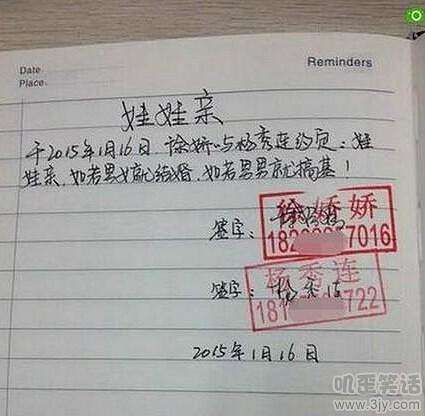 Date
Reminders
Place
娃娃亲
于2015年1月16日 徐娇〃与杨秀连约定：娃
娃亲、如若男女就结婚，如若男男就搞基！
签字：
徐娇娇
7016
签字：杨秀连
杨秀连
722
2015年1月16日
叽歪笑话
www.3jy.com